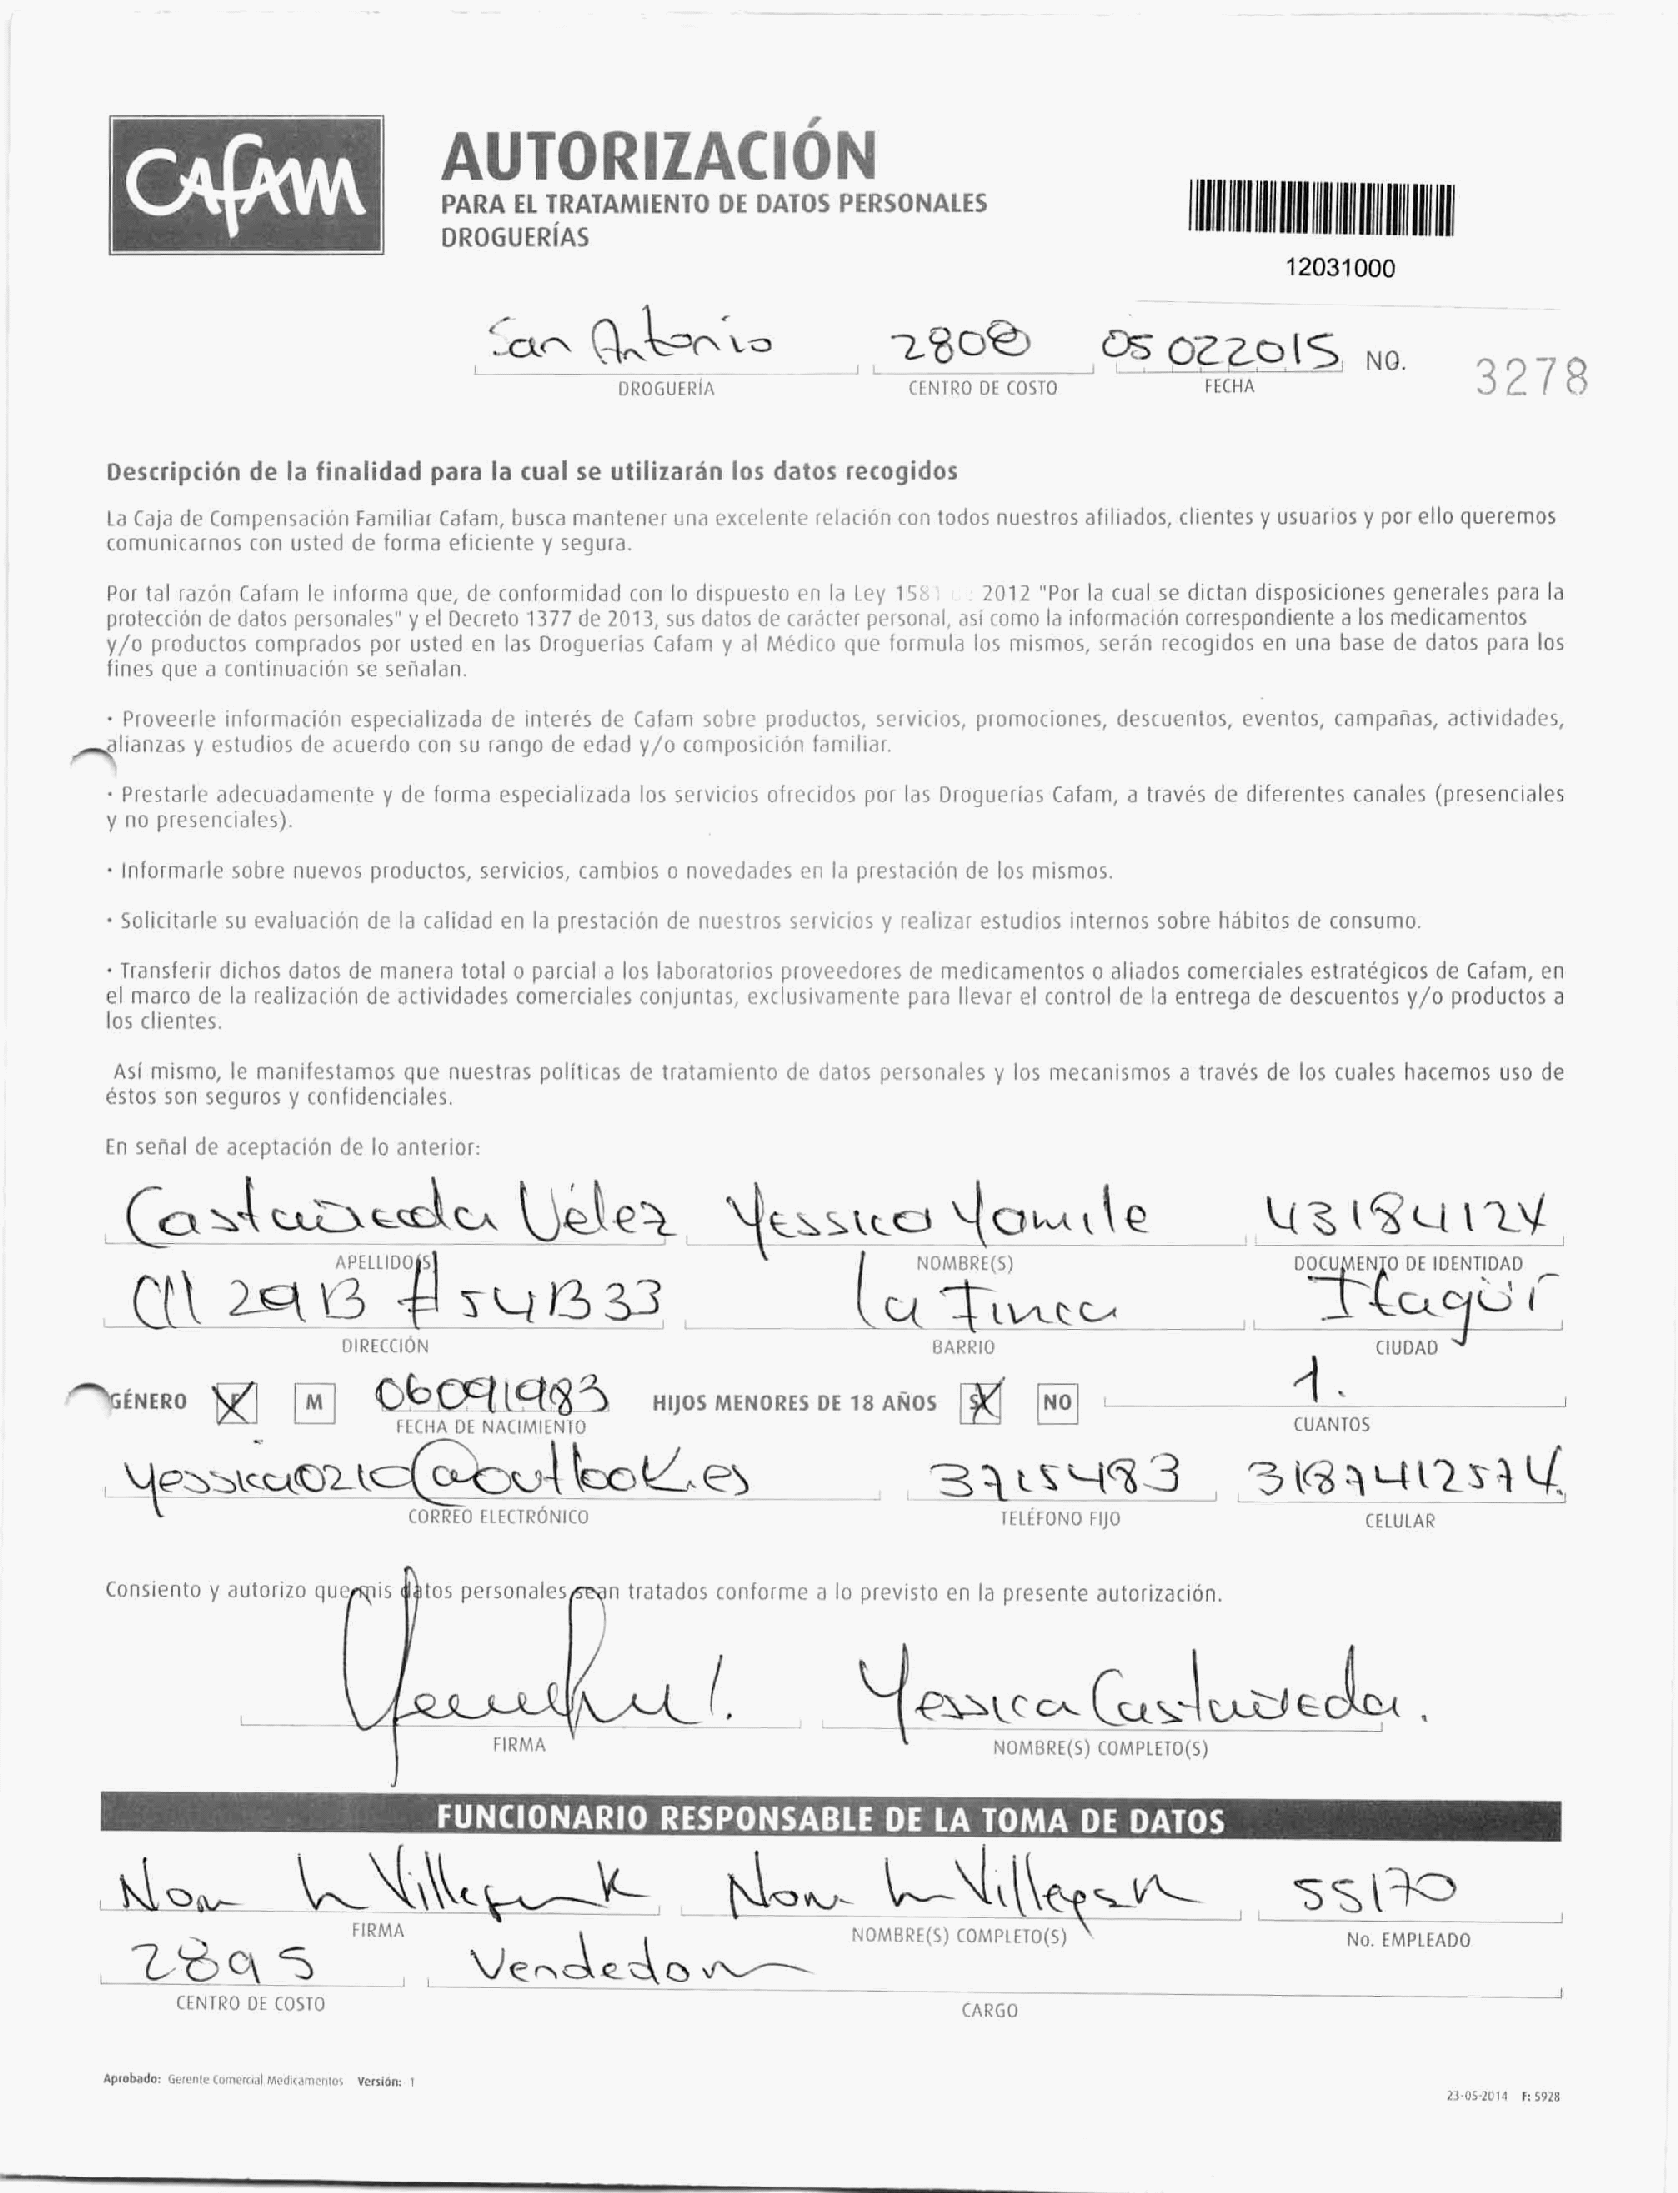 CAFAM
AUTORIZACIÓN
PARA EL TRATAMIENTO DE DATOS PERSONALES
DROGUERÍAS
12031000
San Antonio 2808 05022015 NO. 3278
DROGUERÍA CENTRO DE COSTO FECHA
Descripción de la finalidad para la cual se utilizarán los datos recogidos
La Caja de Compensación Familiar Cafam, busca mantener una excelente relación con todos nuestros afiliados, clientes y usuarios y por ello queremos
comunicarnos con usted de forma eficiente y segura.
Por tal razón Cafam le informa que, de conformidad con lo dispuesto en la Ley 1581 2012 "Por la cual se dictan disposiciones generales para la
protección de datos personales" y el Decreto 1377 de 2013, sus datos de carácter personal, así como la información correspondiente a los medicamentos
y/o productos comprados por usted en las Droguerías Cafam y al Médico que formula los mismos, serán recogidos en una base de datos para los
fines que a continuación se señalan.
· Proveerle información especializada de interés de Cafam sobre productos, servicios, promociones, descuentos, eventos, campañas, actividades,
alianzas y estudios de acuerdo con su rango de edad y/o composición familiar.
· Prestarle adecuadamente y de forma especializada los servicios ofrecidos por las Droguerías Cafam, a través de diferentes canales (presenciales
y no presenciales).
· Informarle sobre nuevos productos, servicios, cambios o novedades en la prestación de los mismos.
· Solicitarle su evaluación de la calidad en la prestación de nuestros servicios y realizar estudios internos sobre hábitos de consumo.
· Transferir dichos datos de manera total o parcial a los laboratorios proveedores de medicamentos o aliados comerciales estratégicos de Cafam, en
el marco de la realización de actividades comerciales conjuntas, exclusivamente para llevar el control de la entrega de descuentos y/o productos a
los clientes.
Así mismo, le manifestamos que nuestras políticas de tratamiento de datos personales y los mecanismos a través de los cuales hacemos uso de
éstos son seguros y confidenciales.
En señal de aceptación de lo anterior:
Castañeda Vélez Yessica Yomile 43184124
APELLIDO(S) NOMBRE(S) DOCUMENTO DE IDENTIDAD
Cll 29B #54B33 la Finca Itagüí
DIRECCIÓN BARRIO CIUDAD
GÉNERO F M 06091983 HIJOS MENORES DE 18 AÑOS SI NO 1.
FECHA DE NACIMIENTO CUANTOS
yessica0210@outlook.es 3715483 3187412574.
CORREO ELECTRÓNICO TELÉFONO FIJO CELULAR
Consiento y autorizo que mis datos personales sean tratados conforme a lo previsto en la presente autorización.
Yessica Castañeda.
FIRMA NOMBRE(S) COMPLETO(S)
FUNCIONARIO RESPONSABLE DE LA TOMA DE DATOS
55170
FIRMA NOMBRE(S) COMPLETO(S) No. EMPLEADO
2895 Vendedora
CENTRO DE COSTO CARGO
Aprobado: Gerente Comercial Medicamentos Versión: 1
23-05-2014 F: 5928